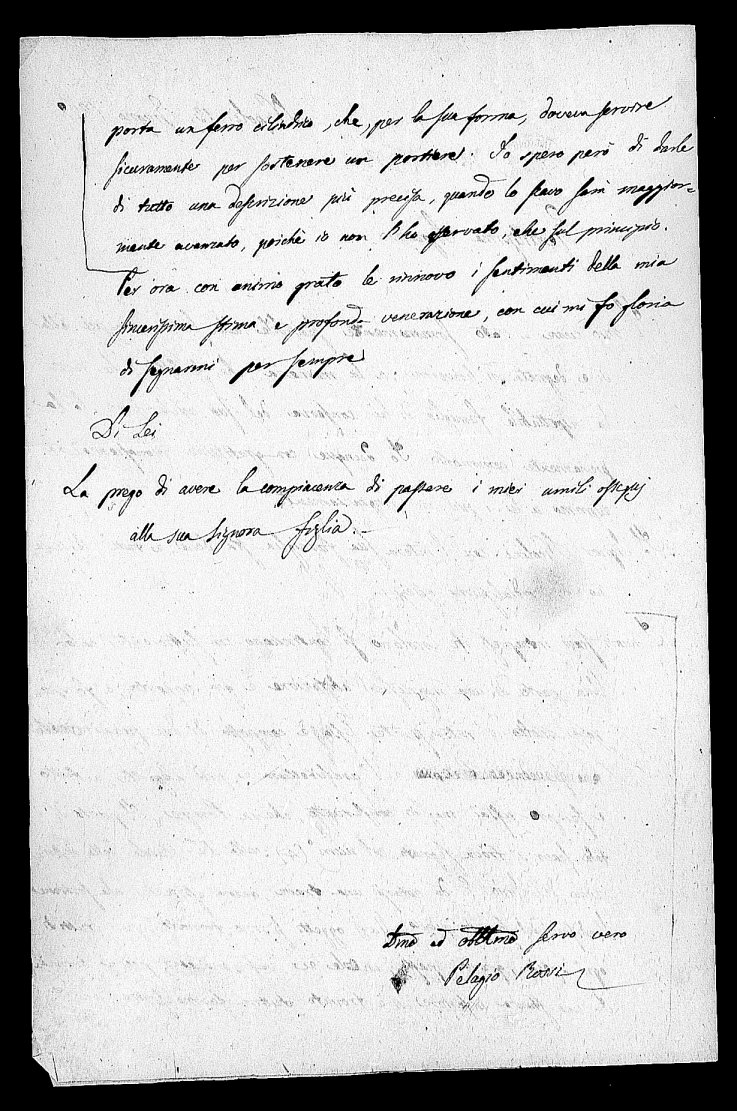 porta un ferro cilindrico, che, per la sua forma, doveva servire
sicuramente per sostenere un portiere. Io spero però di darle
di tutto una descrizione più precisa, quando lo scavo sarà maggior=
mente avanzato, poichè io non l'ho osservato, che sul principio.
Per ora con animo grato le rinnovo i sentimenti della mia
sincerissima stima e profonda venerazione, con cui mi fo gloria
di segnarmi per sempre
Di Lei
La prego di avere la compiacenza di passare i miei umili ossequj
alla sua Signora figlia.-
Dmo ed Obblmo servo vero
Pelagio Rossi